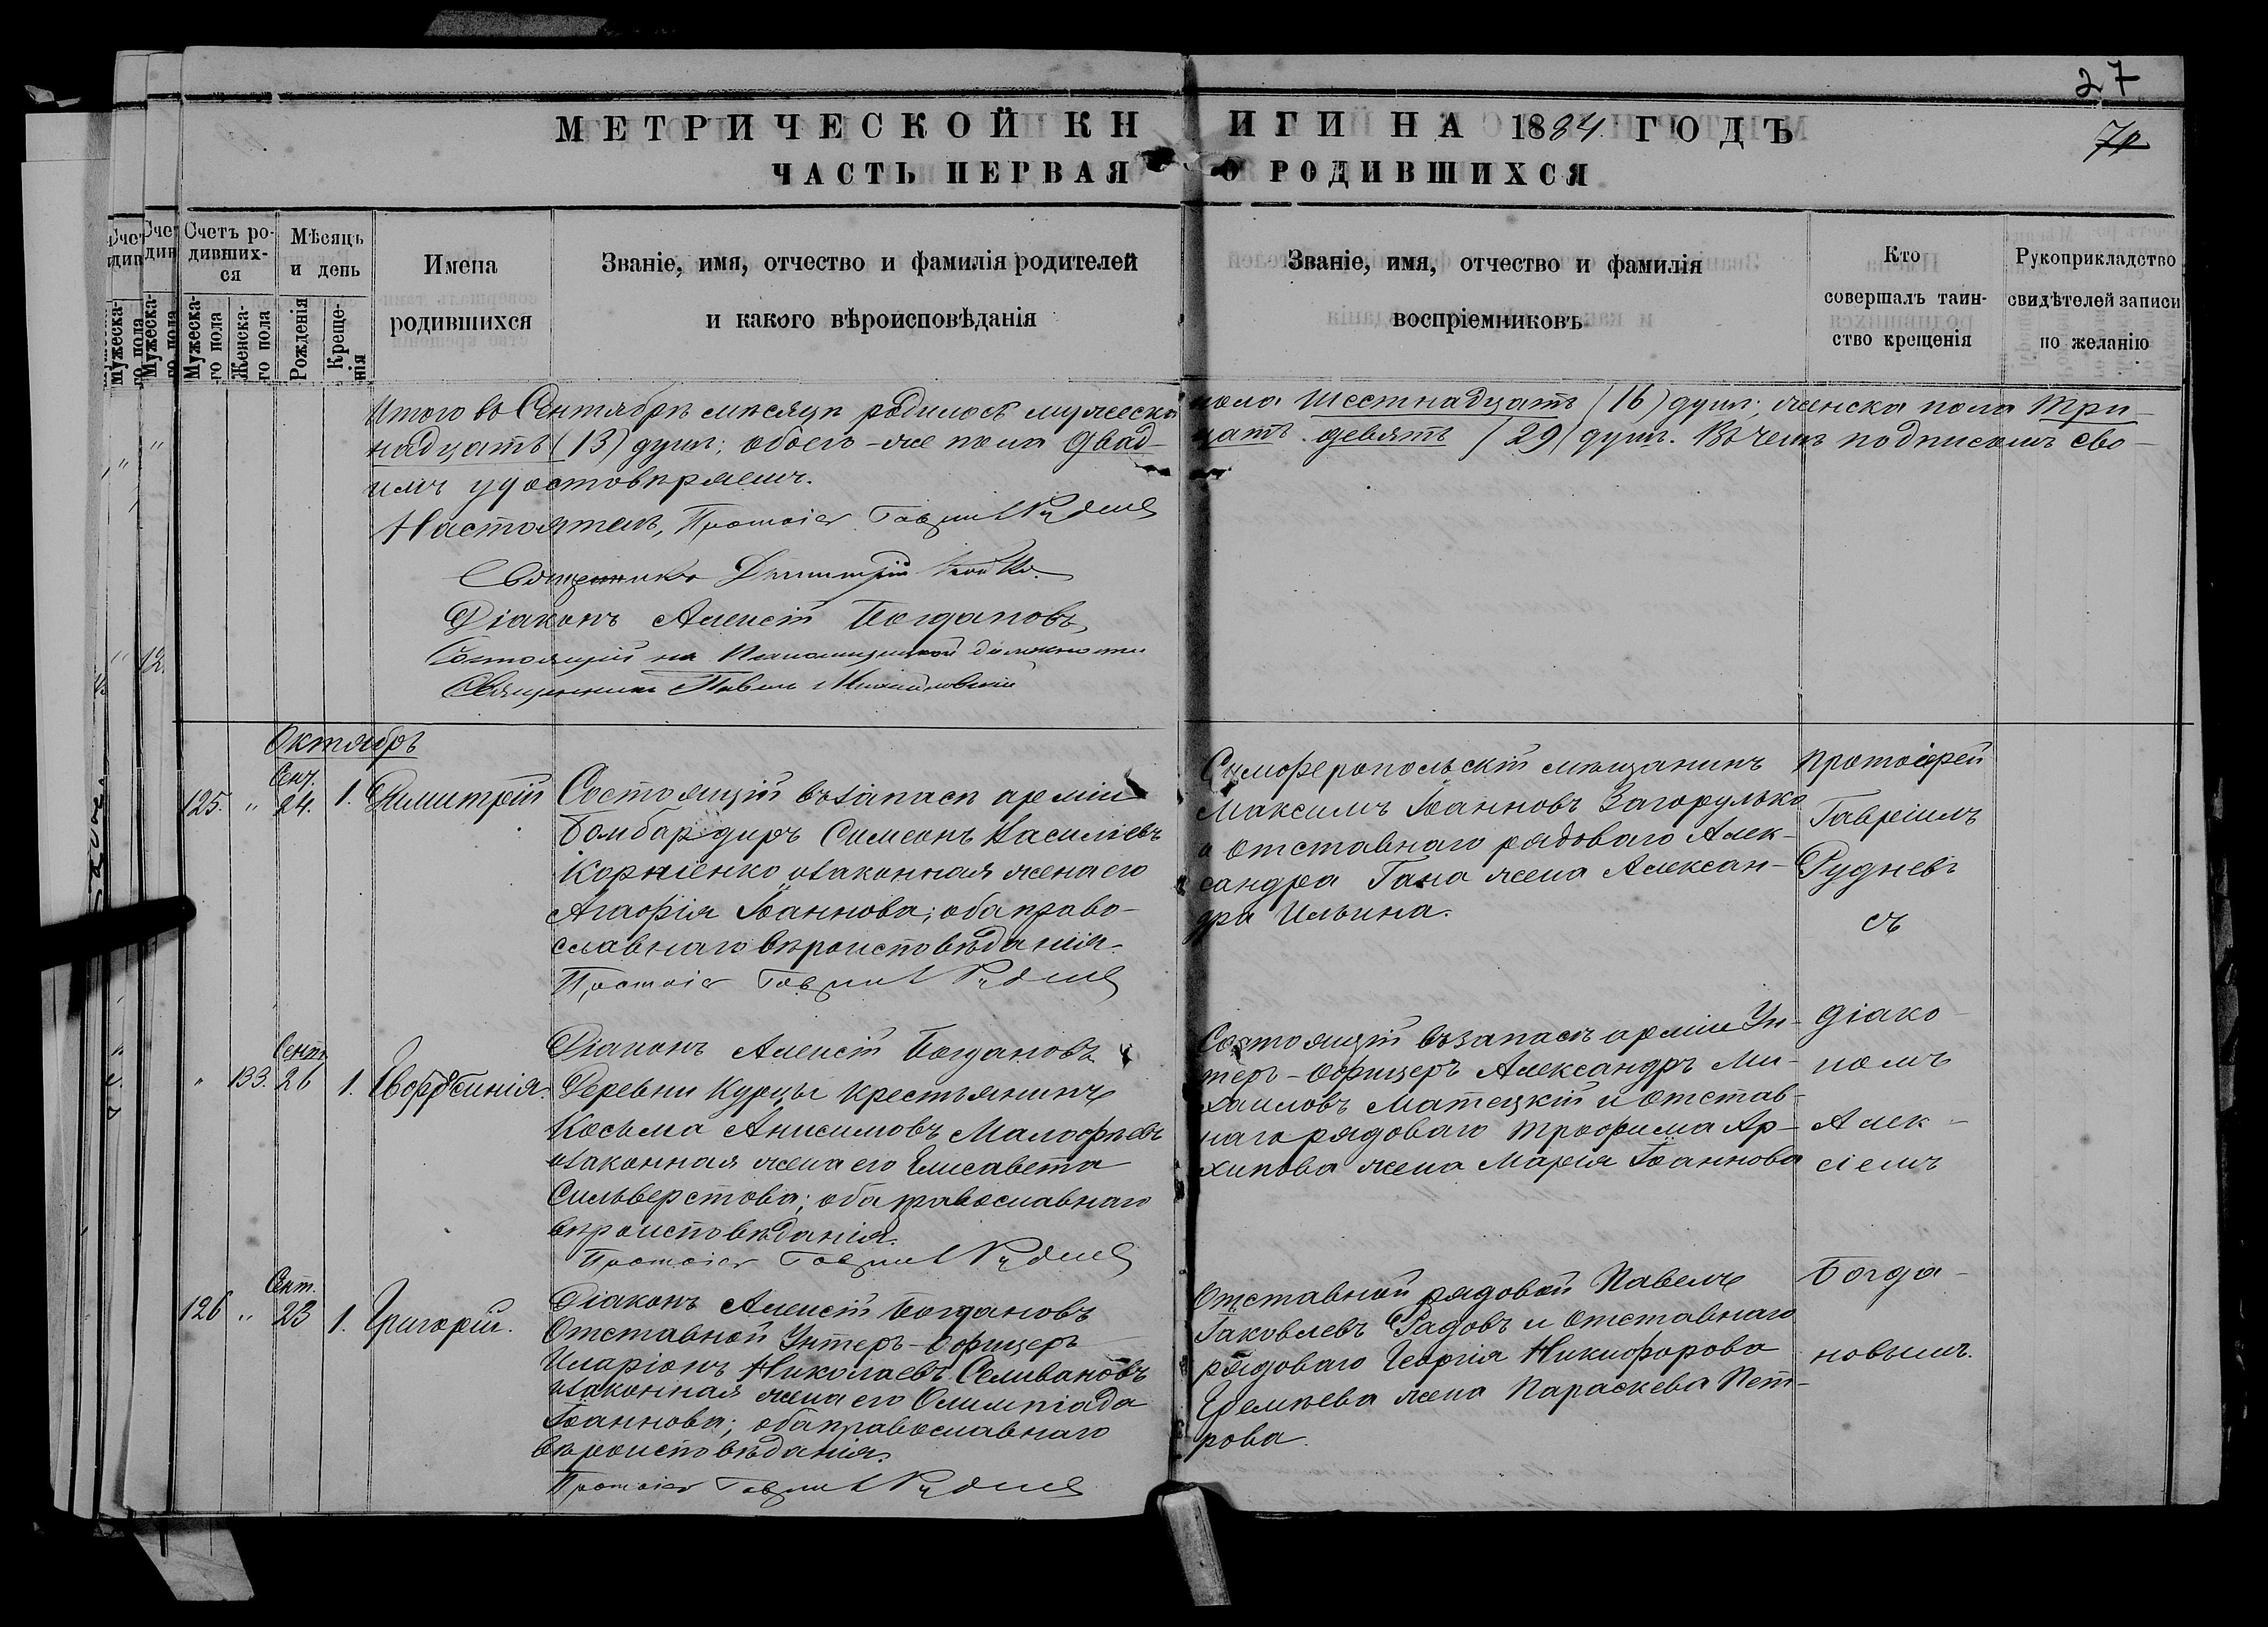 27
МЕТРИЧЕСКОЙ КНИГИ НА 1884 ГОДЪ
7
ЧАСТЬ ПЕРВАЯ О РОДИВШИХСЯ
Счетъ ро-
дивших-
ся
Мужеска-
го пола
Женска-
го пола
Мѣсяцъ
и день
Рожденія
Креще-
нія
Имена
родившихся
Званіе, имя, отчество и фамилія родителей
и какого вѣроисповѣданія
Званіе, имя, отчество и фамилія
воспріемниковъ
Кто
совершалъ таин-
ство крещенія
Рукоприкладство
свидѣтелей записи
по желанію
Итого въ Сентябрѣ мѣсяцѣ родилось мужеска пола шестнадцать (16) душъ; женска пола три-
надцать (13) душъ; обоего-же пола двад-цать девять (29) душъ. Въ чемъ подписомъ сво-
имъ удостовѣряемъ.
Настоятель, Протоіер. Гавріилъ Рудневъ
Священникъ Димитрій
Діаконъ Алексій Богдановъ
Состоящій на Псаломщицкой должности
Священникъ Павелъ Михайловскій
Октябрь
125. " Сен. 24. 1. Димитрій
Состоящій въ запасѣ арміи
Бомбардиръ Симеонъ Василіевъ
Корніенко и законная жена его
Агафія Іоаннова; оба право-
славнаго вѣроисповѣданія.
Протоіер Гавріилъ Рудневъ
Симферопольскій мѣщанинъ
Максимъ Іоанновъ Загорулько
и отставнаго рядоваго Алек-
сандра Гана жена Алексан-
дра Ильина.
Протоіерей
Гавріилъ
Рудневъ
съ
" 133. Сент. 26 1. Евфросинія.
Діаконъ Алексій Богдановъ
Деревни Курцы крестьянинъ
Косьма Анисимовъ Малофѣевъ
и законная жена его Елисавета
Сильверстова; оба православнаго
вѣроисповѣданія.
Протоіер Гавріилъ Рудневъ
Состоящій въ запасѣ арміи Ун-
теръ-Офицеръ Александръ Ми-
хаиловъ Матецкій и отстав-
наго рядоваго Трофима Ар-
хипова жена Марія Іоаннова
діако-
номъ
Алек-
сіемъ
126 " Сент. 23 1. Григорій.
Діаконъ Алексій Богдановъ
Отставной Унтеръ-Офицеръ
Иларіонъ Николаевъ Селивановъ
и законная жена его Олимпіада
Іоаннова; оба православнаго
вѣроисповѣданія.
Протоіер Гавріилъ Рудневъ
Отставной рядовой Павелъ
Іаковлевъ Радовъ и отставнаго
рядоваго Георгія Никифорова
Еремѣева жена Параскева Пет-
рова.
Богда-
новымъ.